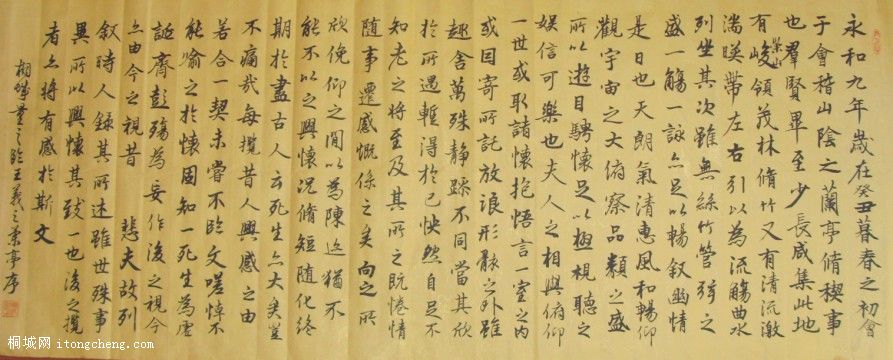 永和九年歲在癸丑暮春之初會
于會稽山陰之蘭亭脩稧事
也羣賢畢至少長咸集此地
有崇山峻領茂林脩竹又有清流激
湍暎帶左右引以為流觴曲水
列坐其次雖無絲竹管弦之
盛一觴一詠亦足以暢叙幽情
是日也天朗氣清惠風和暢仰
觀宇宙之大俯察品類之盛
所以遊目騁懷足以極視聽之
娛信可樂也夫人之相與俯仰
一世或取諸懷抱悟言一室之內
或因寄所託放浪形骸之外雖
趣舍萬殊静躁不同當其欣
於所遇暫得於己怏然自足不
知老之將至及其所之既惓情
隨事遷感慨係之矣向之所
欣俛仰之閒以為陳迹猶不
能不以之興懷況脩短隨化終
期於盡古人云死生亦大矣豈
不痛哉每攬昔人興感之由
若合一契未嘗不臨文嗟悼不
能喻之於懷固知一死生為虛
誕齊彭殤為妄作後之視今
亦由今之視昔 悲夫故列
叙時人錄其所述雖世殊事
異所以興懷其致一也後之攬
者亦將有感於斯文
之臨王羲之蘭亭序
桐城网 itongcheng.com